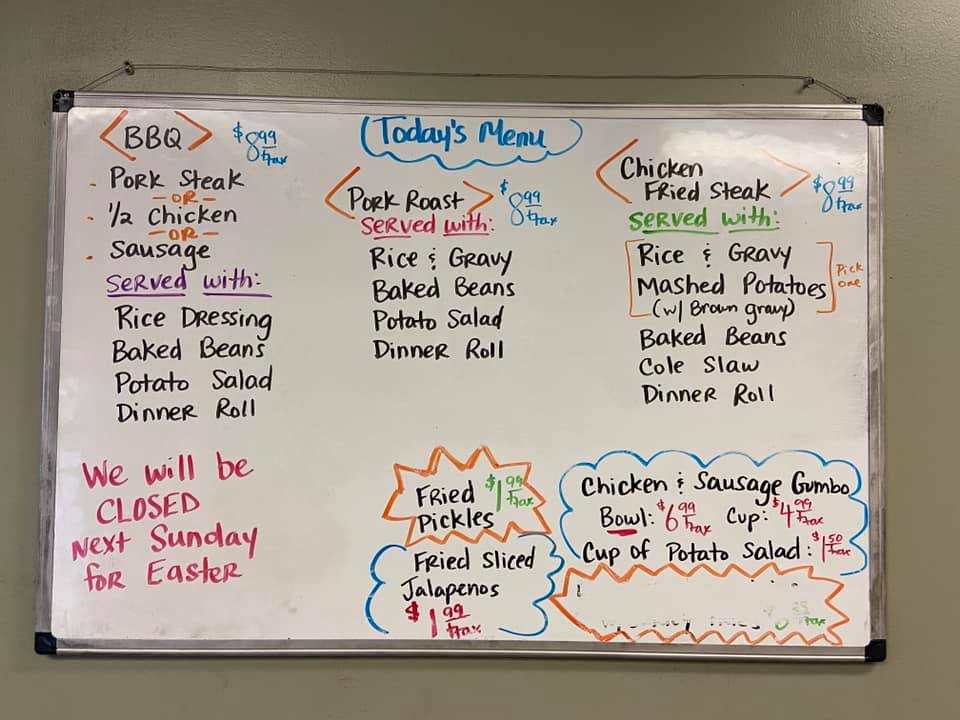 Today's Menu
BBQ $8.99 + tax
Pork Steak
- OR -
1/2 Chicken
- OR -
Sausage
Served with:
Rice Dressing
Baked Beans
Potato Salad
Dinner Roll
We will be
CLOSED
Next Sunday
for Easter
Pork Roast $8.99 + tax
Served with:
Rice & Gravy
Baked Beans
Potato Salad
Dinner Roll
Fried $1.99 + tax
Pickles
Fried Sliced
Jalapenos
$1.99 + tax
Chicken
Fried Steak $8.99 + tax
Served with:
Rice & Gravy
Mashed Potatoes
(w/ Brown gravy)
Pick
one
Baked Beans
Cole Slaw
Dinner Roll
Chicken & Sausage Gumbo
Bowl: $6.99 + tax Cup: $4.99 + tax
Cup of Potato Salad: $1.50 + tax